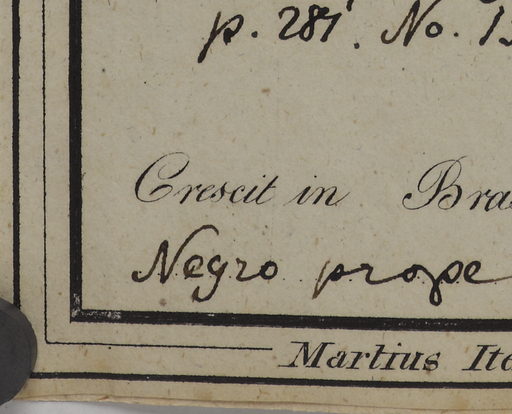 p. 281. No. 1
Crescit in Bra
Negro prope
Martius Ite